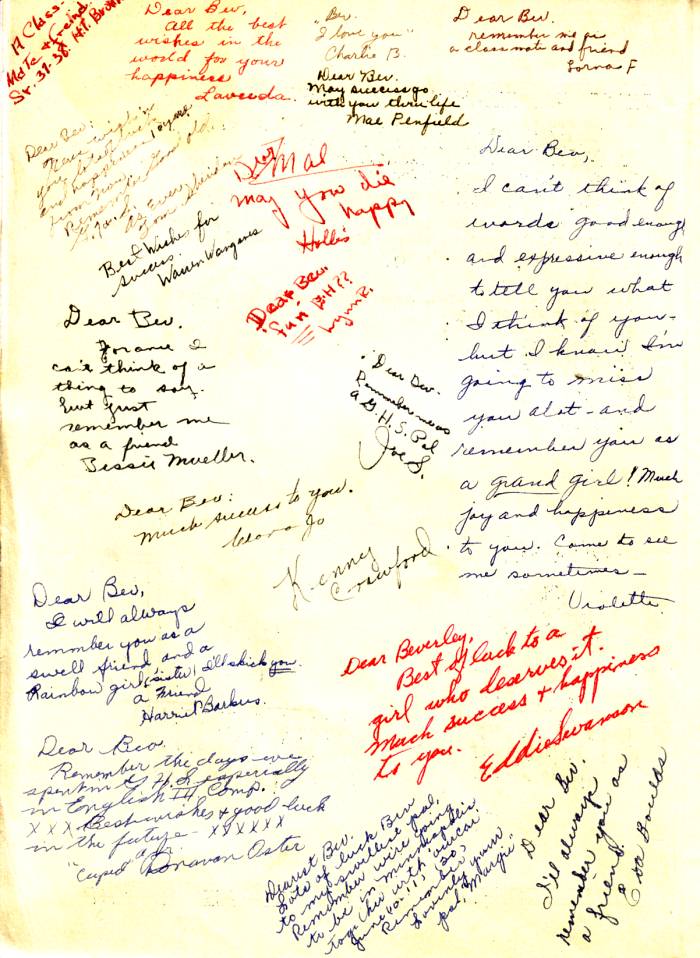 A Class.
Sr. 37-38. H.T. Brown
Dear Bev,
All the best
wishes in the
world for your
happiness
Laveeda.
"Bev.
I love you"
Charlie B.
Dear Bev.
May success go
with you thru life
Mae Penfield
Dear Bev.
remember me as
a classmate and friend
Lorna F
Dear Bev:
you
and happiness
from now
Remember
As Ever
Best Wishes for
success.
Warren
Dear Mal
may you die
happy
Hollis
Dear Bev.
fun
Dear Bev,
I can't think of
words good enough
and expressive enough
to tell you what
I think of you-
but I know I'm
going to miss
you alot - and
remember you as
a grand girl! Much
joy and happiness
to you. Come to see
me sometimes —
Violette
Dear Bev.
For once I
can't think of a
thing to say.
but just
remember me
as a friend
Bessie Mueller.
Dear Bev.
Remember me as
a G.H.S. Pal
Joe S.
Dear Bev:
Much success to you.
Cleora Jo
Kenny
Crawford
Dear Bev,
I will always
remember you as a
swell friend and a
Rainbow girl (sister) I'll shick you.
a Friend
Harriet Barkus.
Dear Beverley,
Best of luck to a
girl who deserves it.
Much success + happiness
to you.
Eddie Swanson
Dear Bev.
Remember the days we
spent in G.H.S. especially
in English III Comp.
XXX Best wishes & good luck
in the future - XXXXXX
"Cupid"
Donavan Oster
Dearest Bev.
Lots of luck Bev
to my swellest pal,
Remember were going
to be in Minneapolis
together with our car
June
Remember
Lovingly yours
pal, "Margie"
Dear Bev.
I'll always
remember you as
a friend.
Eva Boulds